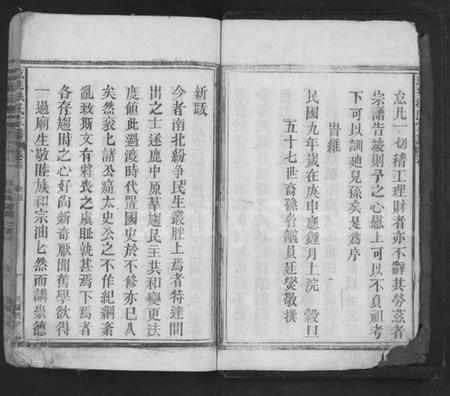 怠凡一切稽工理財者亦不辭其勞茲者
宗譜告竣則予之心慰上可以不負祖考
下可以訓廸兒孫矣是為序
旹維
民國九年歲在庚申應鍾月上浣 穀旦
五十七世裔孫省議員廷燮敬撰
新跋
今者南北紛爭民生叢脞上焉者特達間
出之士逐鹿中原羣趨民主共和變更法
度値此過渡時代置國史於不修亦已八
矣然袞化諸公痛太史公之不作紀綱紊
亂致斯文有將喪之虞耻孰甚焉下焉者
各存趨時之心好尚新奇厭聞舊學欲得
一過廟生敬睦族和宗油乚然而講崇德